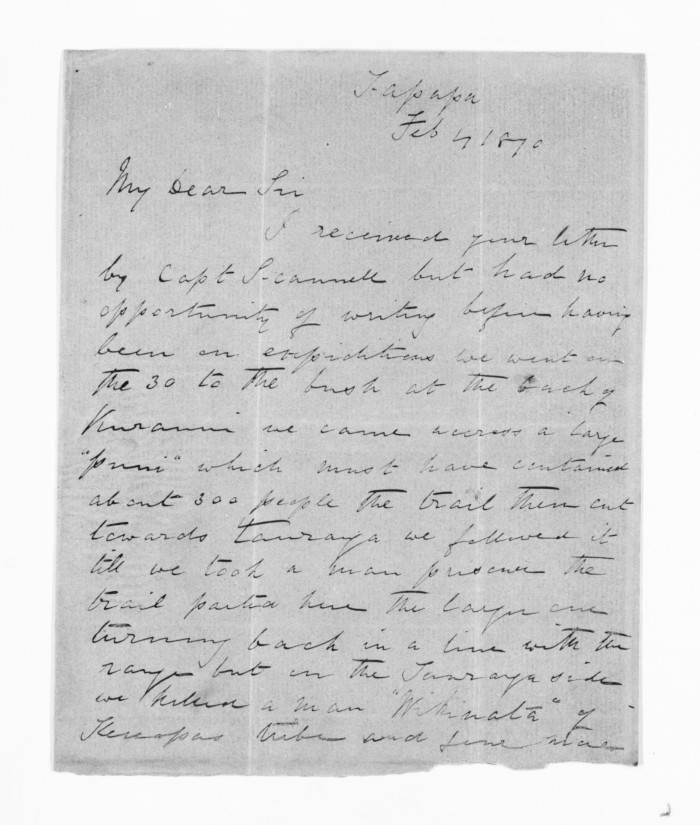 Tapapa
Feb 4 1870
My Dear Sir
I received your letter
by Capt Scannell but had no
opportunity of writing before having
been on expeditions we went on
the 30 to the bush at the back of
we came accross a large
"puni" which must have contained
about 300 people the trail then cut
towards Tauranga we followed it
till we took a man prisoner the
trail parted here the larger one
turning back in a line with the
range but on the Tauranga side
we killed a man of
tribe and